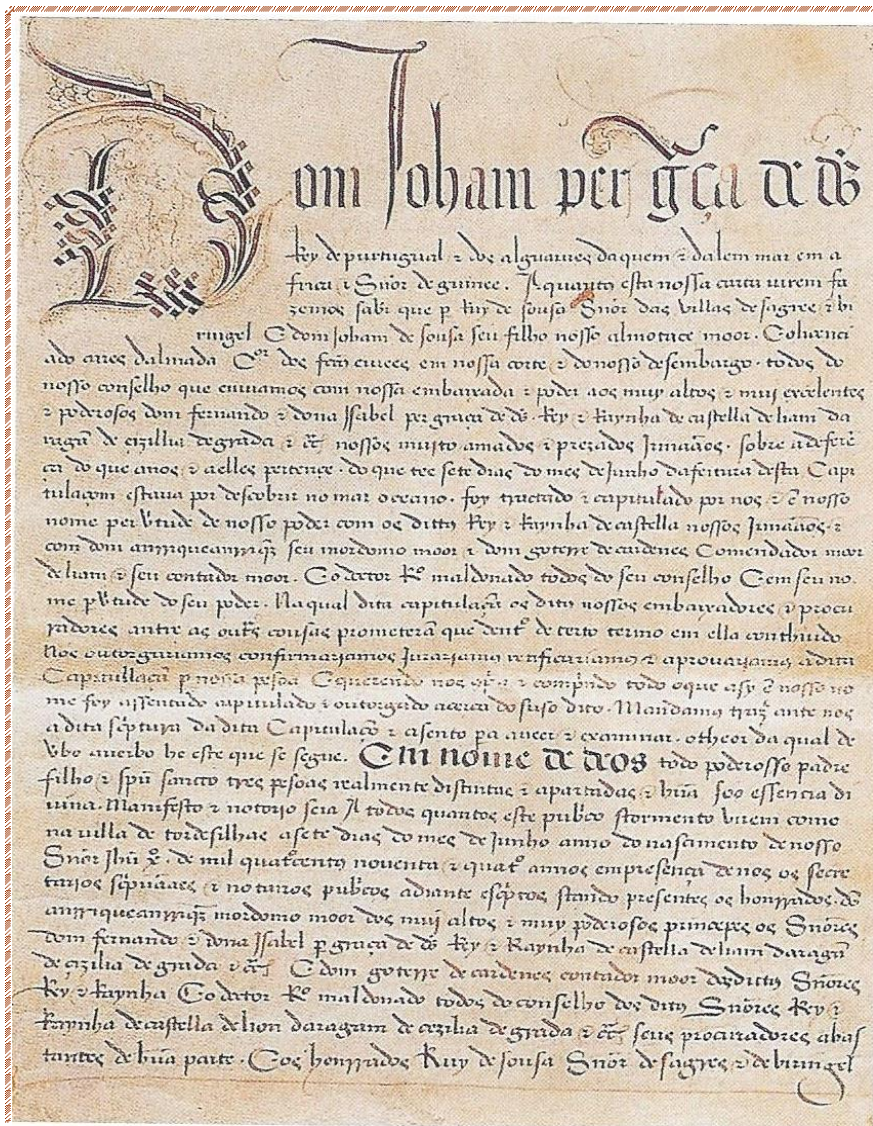 Dom Joham per gr̃ça de ds̃
Rey de purtugual ⁊ dos alguarues daquem ⁊ dalem mar em a
frica ⁊ Sñor de guinee. A quantos esta nossa carta virem fa
zemos sabr̃ que p Ruy de sousa Sñor das villas de sagres ⁊ bi
ringel E dom Joham de sousa seu filho nosso almotace moor. E o licenci
ado aires dalmada Cor̃ dos fectos civees em nossa corte ⁊ do nosso desembargo. todos do
nosso conselho que enviamos com nossa embaixada ⁊ poder aos muy altos ⁊ mui excelentes
⁊ poderosos dom fernando ⁊ dona Isabel per graça de ds̃. Rey ⁊ Raynha de castella de liam da
ragã de cizillia de grada ⁊ c̃t nossos muito amados ⁊ prezados Irmaãos. sobre a deferẽ
ça do que a nos ⁊ a elles pertence. do que tee sete dias do mes de Junho da feitura desta Capi
tulaçom estava por descobrir no mar oceano. foy tractado ⁊ capitulado por nos ⁊ ẽ nosso
nome per v̾tude de nosso poder com os dittos Rey ⁊ Raynha de castella nossos Irmaãos. ⁊
com dom anrrique anrriq̃z seu mordomo moor ⁊ dom goterre de cardenes Comendador moor
de liam ⁊ seu contador moor. E o doctor Ro maldonado todos do seu conselho E em seu no.
me p v̾tude do seu poder. Na qual dita capitulaçã os ditos nossos embaixadores ⁊ procu
radores antre as outrs̃ cousas prometerã que dentº de certo termo em ella conthiudo
Nos outorgariamos confirmariamos Jurariamos retificariamos ⁊ aprovariamos a dita
Capitullaçã p nossa pesoa E querendo nos ⁊ comp̃ndo todo o que asy ẽ nosso no
me foy assentado capitulado ⁊ outorgado acerca do suso dito. Mandamos traz̃ ante nos
a dita scp̃tura da dita Capitulaçõ ⁊ asento pa a veer ⁊ examinar. o theor da qual de
v̾bo a verbo he este que se segue. Em nome de deos todo poderosso padre
filho ⁊ spũ sancto tres pesoas realmente distintas ⁊ apartadas ⁊ hũa soo essencia di
vina. Manifesto ⁊ notorio seia A todos quantos este pubrco stormento virem como
na villa de tordesilhas a sete dias do mes de Junho anno do nascimento de nosso
Sñor Jhũ x̃. de mil quatrc̃entos noventa ⁊ quatº annos em presença de nos os secre
tarios scp̃vaães ⁊ notarios pubrcos adiante escp̃tos stando presentes os honrrados. dõ
anrrique anrriq̃z mordomo moor dos mui altos ⁊ muy poderosos principes os Sñores
dom fernando ⁊ dona Isabel p graça de ds̃ Rey ⁊ Raynha de castella de liam daragã
de cizilia de grada ⁊ c̃t E dom goterre de cardenes contador moor dos dictos Sñores
Rey ⁊ Raynha E o doctor Ro maldonado todos do conselho dos ditos Sñores Rey ⁊
Raynha de castella de lion daragam de cezilia de grada ⁊ c̃t seus procuradores abas
tantes de hũa parte. E os honrrados Ruy de sousa Sñor de sagres ⁊ de biringel